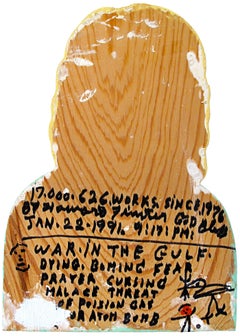 17.000.626 WORKS SINCE 1976
BY HOWARD FINSTER GOD
JAN. 22. 1991. 9:17: PM:
WAR. IN THE GULF.
DYING. BOMING FEAR
PRAYER CURSING
MALACE
OF POISION GAS
OR ATOM BOMB